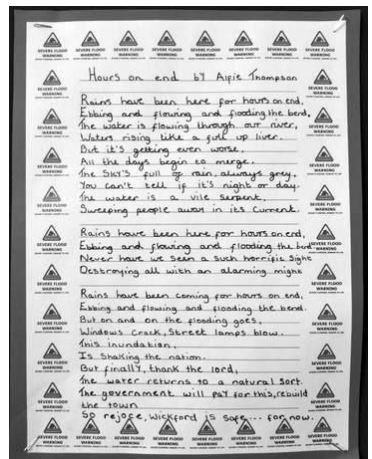 SEVERE FLOOD WARNING
Hours on end by Alfie Thompson
Rains have been here for hours on end,
Ebbing and flowing and flooding the bend,
The water is flowing through our river,
Waters rising like a fire up liver.
But it's getting even worse,
All the days begin to merge.
The Sky's full of rain, always grey,
You can't tell if it's night or day.
The water is a vile serpent,
Sweeping people away in its current.
Rains have been here for hours on end,
Ebbing and flowing and flooding the bend
Never have we seen a such horrific sight
Destroying all with an alarming might
Rains have been coming for hours on end,
Ebbing and flowing and flooding the bend.
But on and on the flooding goes,
Windows crack, Street lamps blow.
This inundation,
Is shaking the nation.
But finally, thank the lord,
The water returns to a natural sort.
The government will pay for this, rebuild
the town
So rejoice, Wickford is safe... for now.